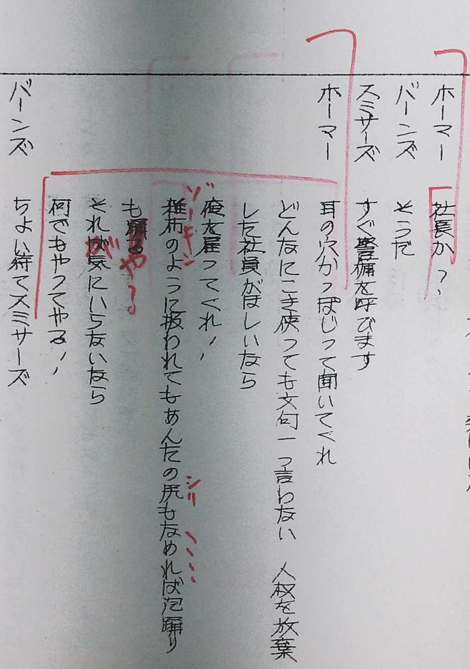 ホーマー 社長か?
バーンズ そうだ
スミサーズ すぐ警備を呼びます
ホーマー 耳の穴かっぽじって聞いてくれ
どんなにこき使っても文句一つ言わない 人権を放棄
した社員がほしいなら
俺を雇ってくれ!
雑巾のように扱われてもあんたの尻もなめれば泡踊り
ゾーキン
シリ
も
や〜
それが気にいらないなら
が
何でもやってやる!
バーンズ ちょい待てスミサーズ